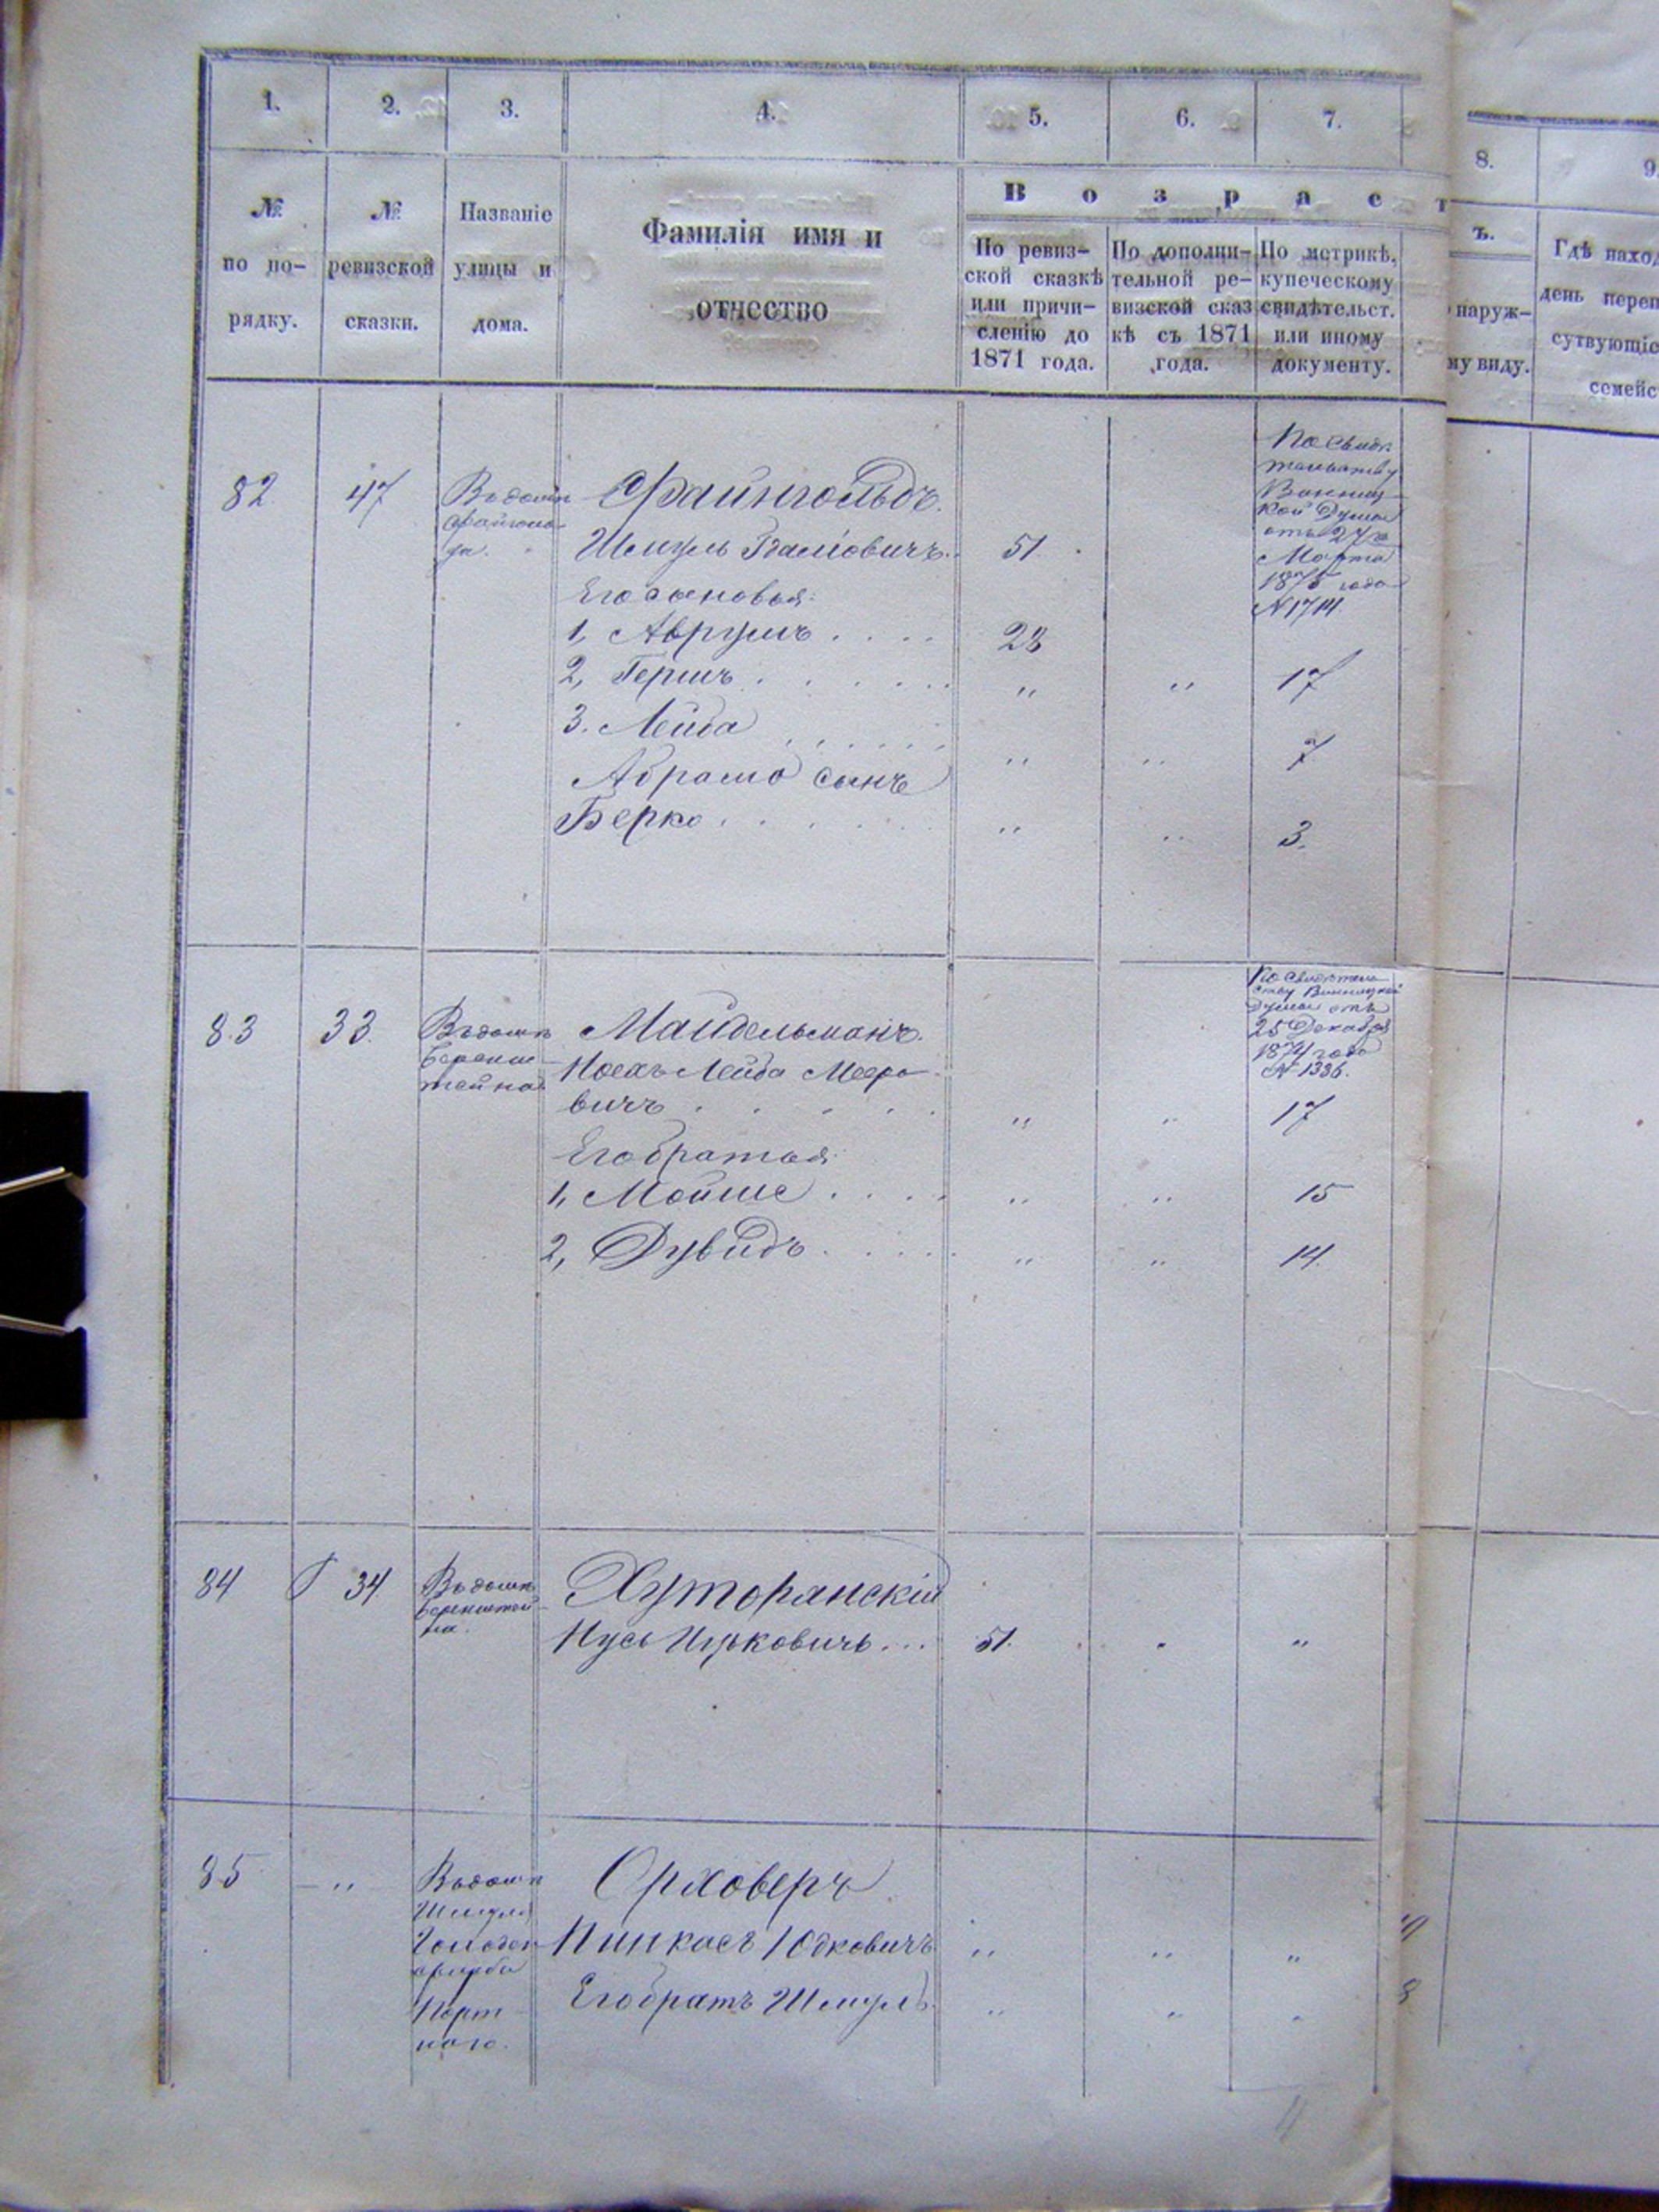 1. 2. 3. 4. 5. 6. 7.
8. 9.
В о з р а с т
ъ.
№
по по-
рядку.
№
ревизской
сказки.
Названіе
улицы и
дома.
Фамилія имя и
отчество
По ревиз-
ской сказкѣ
или причи-
сленію до
1871 года.
По дополни-
тельной ре-
визской сказ
кѣ съ 1871
года.
По метрикѣ,
купеческому
свидѣтельст.
или иному
документу.
наруж-
му виду.
Гдѣ наход
день переп
сутвующіе
семейс
82 47
Въ домѣ
Файнголь-
да.
Файнгольдъ.
Шмуль ... 51
Его сыновья:
1, Аврумъ . . . . 23
2, Гершъ . . . . . . " " 17
3. Лейба . . . . . . " " 7
Абрама сынъ
Берко . . . . . . " " 3.
По свидѣ
тельству
Винниц-
кой Думы
отъ 27го
Марта
1875 года
№ 1714.
83 33.
Въ домѣ
Беренш-
тейна
Майдельманъ.
Ноехъ Лейба Мееро-
вичъ . . . . . " " 17
Его братья:
1, Мойше . . . . " " 15
2, Дувидъ . . . . . " " 14.
По свидѣтель
ству Винницкой
Думы отъ
25 Декабря
1874 года
№ 1336.
84 34.
Въ домѣ
Беренштей-
на.
Хуторянскій
Нусь Ицковичъ... 51. " "
85 "
Въ домѣ
Шмуля
Порт-
наго.
Орховеръ
Пинкасъ Юдковичъ " " "
Его братъ Шмуль " " "